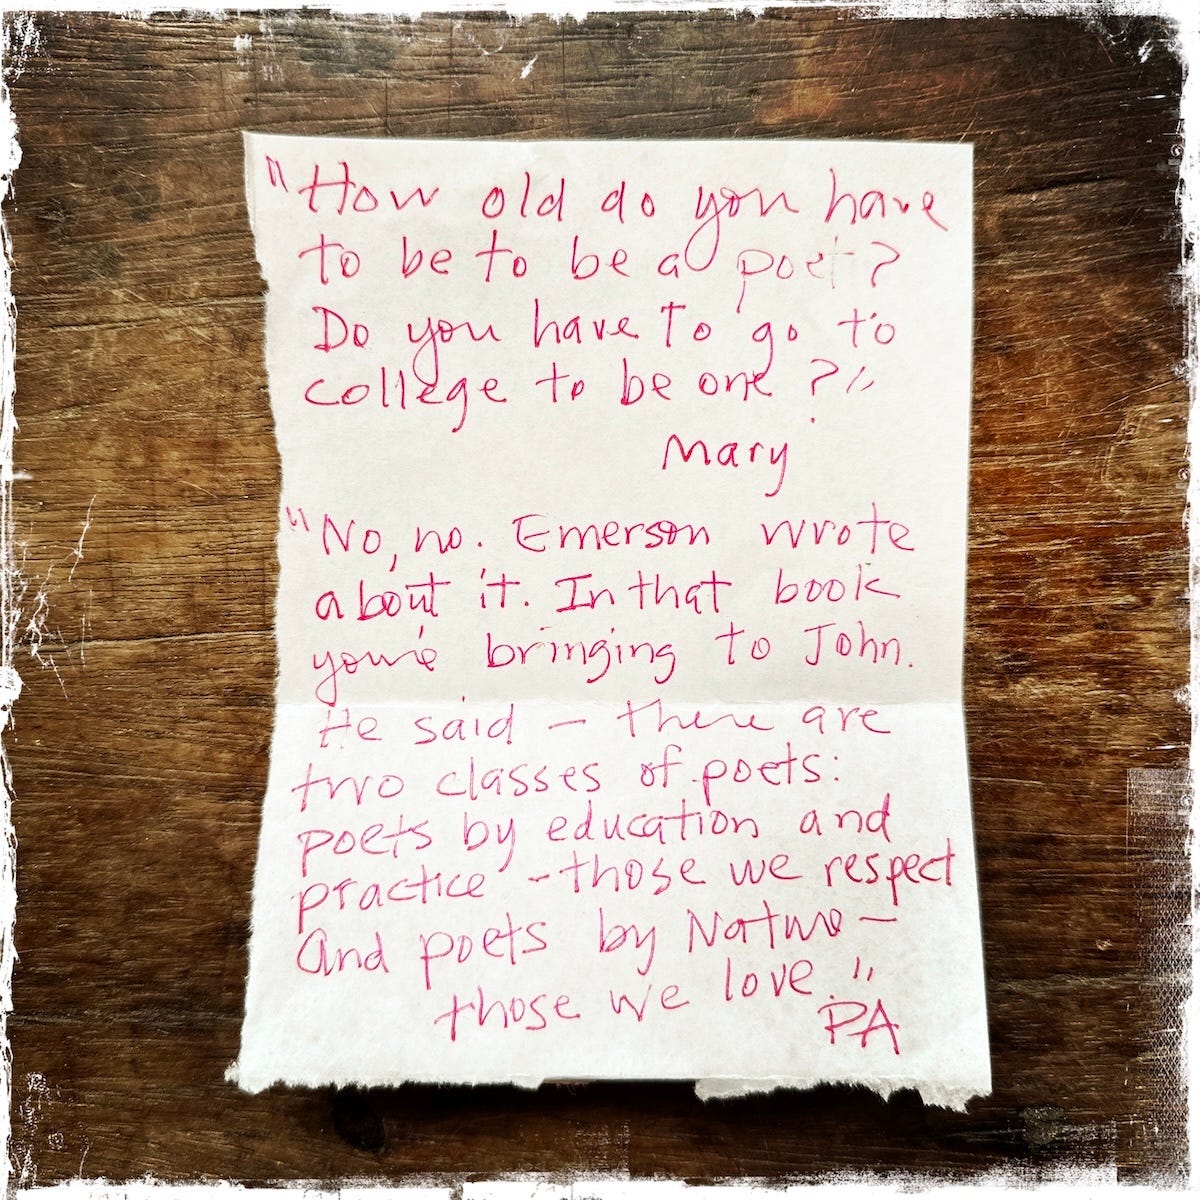 "How old do you have
to be to be a poet?
Do you have to go to
college to be one?"
Mary
"No, no. Emerson wrote
about it. In that book
you're bringing to John.
He said – there are
two classes of poets:
poets by education and
practice – those we respect
And poets by Nature –
those we love."
PA